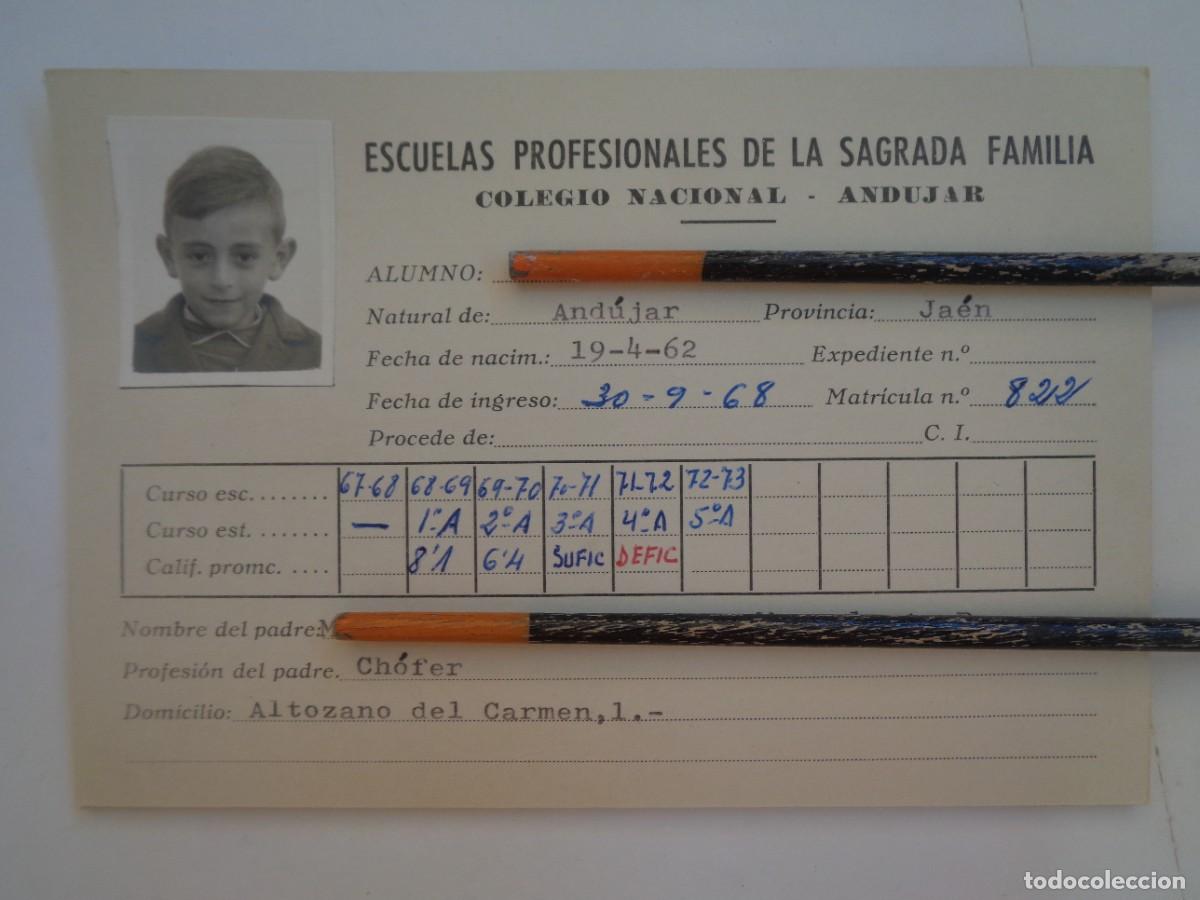 ESCUELAS PROFESIONALES DE LA SAGRADA FAMILIA
COLEGIO NACIONAL - ANDUJAR
ALUMNO:
Natural de: Andújar Provincia: Jaén
Fecha de nacim.: 19-4-62 Expediente n.º
Fecha de ingreso: 30-9-68 Matrícula n.º 822
Procede de: C. I.
Curso esc. 67-68 68-69 69-70 70-71 71-72 72-73
Curso est. — 1ºA 2ºA 3ºA 4ºA 5ºA
Calif. promc. 8'1 6'4 SUFIC DEFIC
Nombre del padre: M
Profesión del padre. Chófer
Domicilio: Altozano del Carmen,1.-
todocoleccion